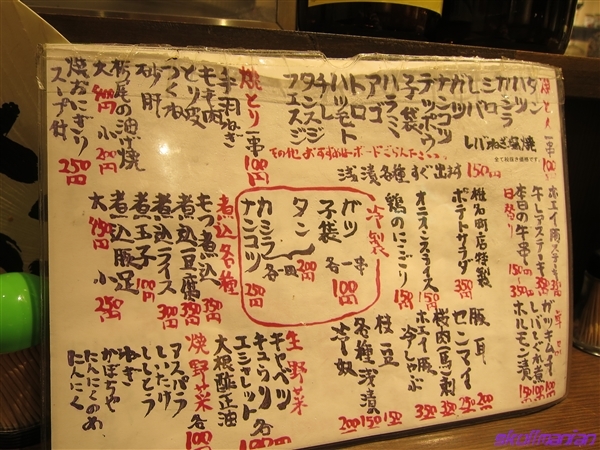 焼とん 一串 100円
タン
ハツ
カシラ
シロ
レバ
ガツ
ナンコツ
テッポウ
子袋
ハラミ
アゴ
トロ
ハツモト
チレ
タンスジ
フエスジ
レバねぎ塩焼
全て税抜き価格です。
焼とり 一串 100円
手羽
ねぎ
もも肉
とり皮
つくね
砂肝
栃尾の油げ焼
大 400円 小 200円
焼おにぎり
スープ付 250円
その他、おすすめはボードごらん下さい
浅漬各種すぐ出ます 150円
ホエイ豚ステーキ 350
牛レアステーキ 350
本日の牛串 150〜350
日替り
椎名町店特製
ポテトサラダ 350
オニオンスライス 150
鶏のにこごり 150円
冷製
ガツ
子袋
各一串 100円
タン
カシラ
各一皿 200円
ナンコツ 250円
煮込各種
もつ煮込 350
煮込豆腐 350
煮込ライス 350
煮玉子 100円
煮込豚足
大 450円 小 250円
ガツチャーハン
レバとく水煮
ホルモン漬 350
豚耳 200
センマイ 250
桜肉馬刺 350
ホエイ豚冷しゃぶ 350
枝豆 150
各種浅漬 150
冷奴 200
生野菜
キャベツ
キュウリ
エシャレット
大根醤正油
各100円
焼野菜 各100円
アスパラ
しいたけ
ししとう
ねぎ
かぼちゃ
にんにくのめ
にんにく
eikuffmanian